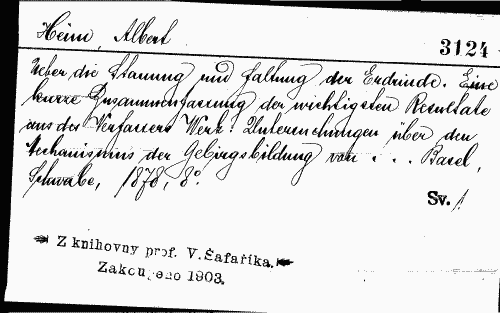 Heim, Albert
3124
Ueber die Stauung und Faltung der Erdrinde. Eine
kurze Zusammenfassung der wichtigsten Resultate
aus des Verfassers Werk: Untersuchungen über den
Mechanismus der Gebirgsbildung von . . . Basel,
Schwabe, 1878, 8°.
Sv. 1
Z knihovny prof. V. Šafaříka.
Zakoupeno 1903.